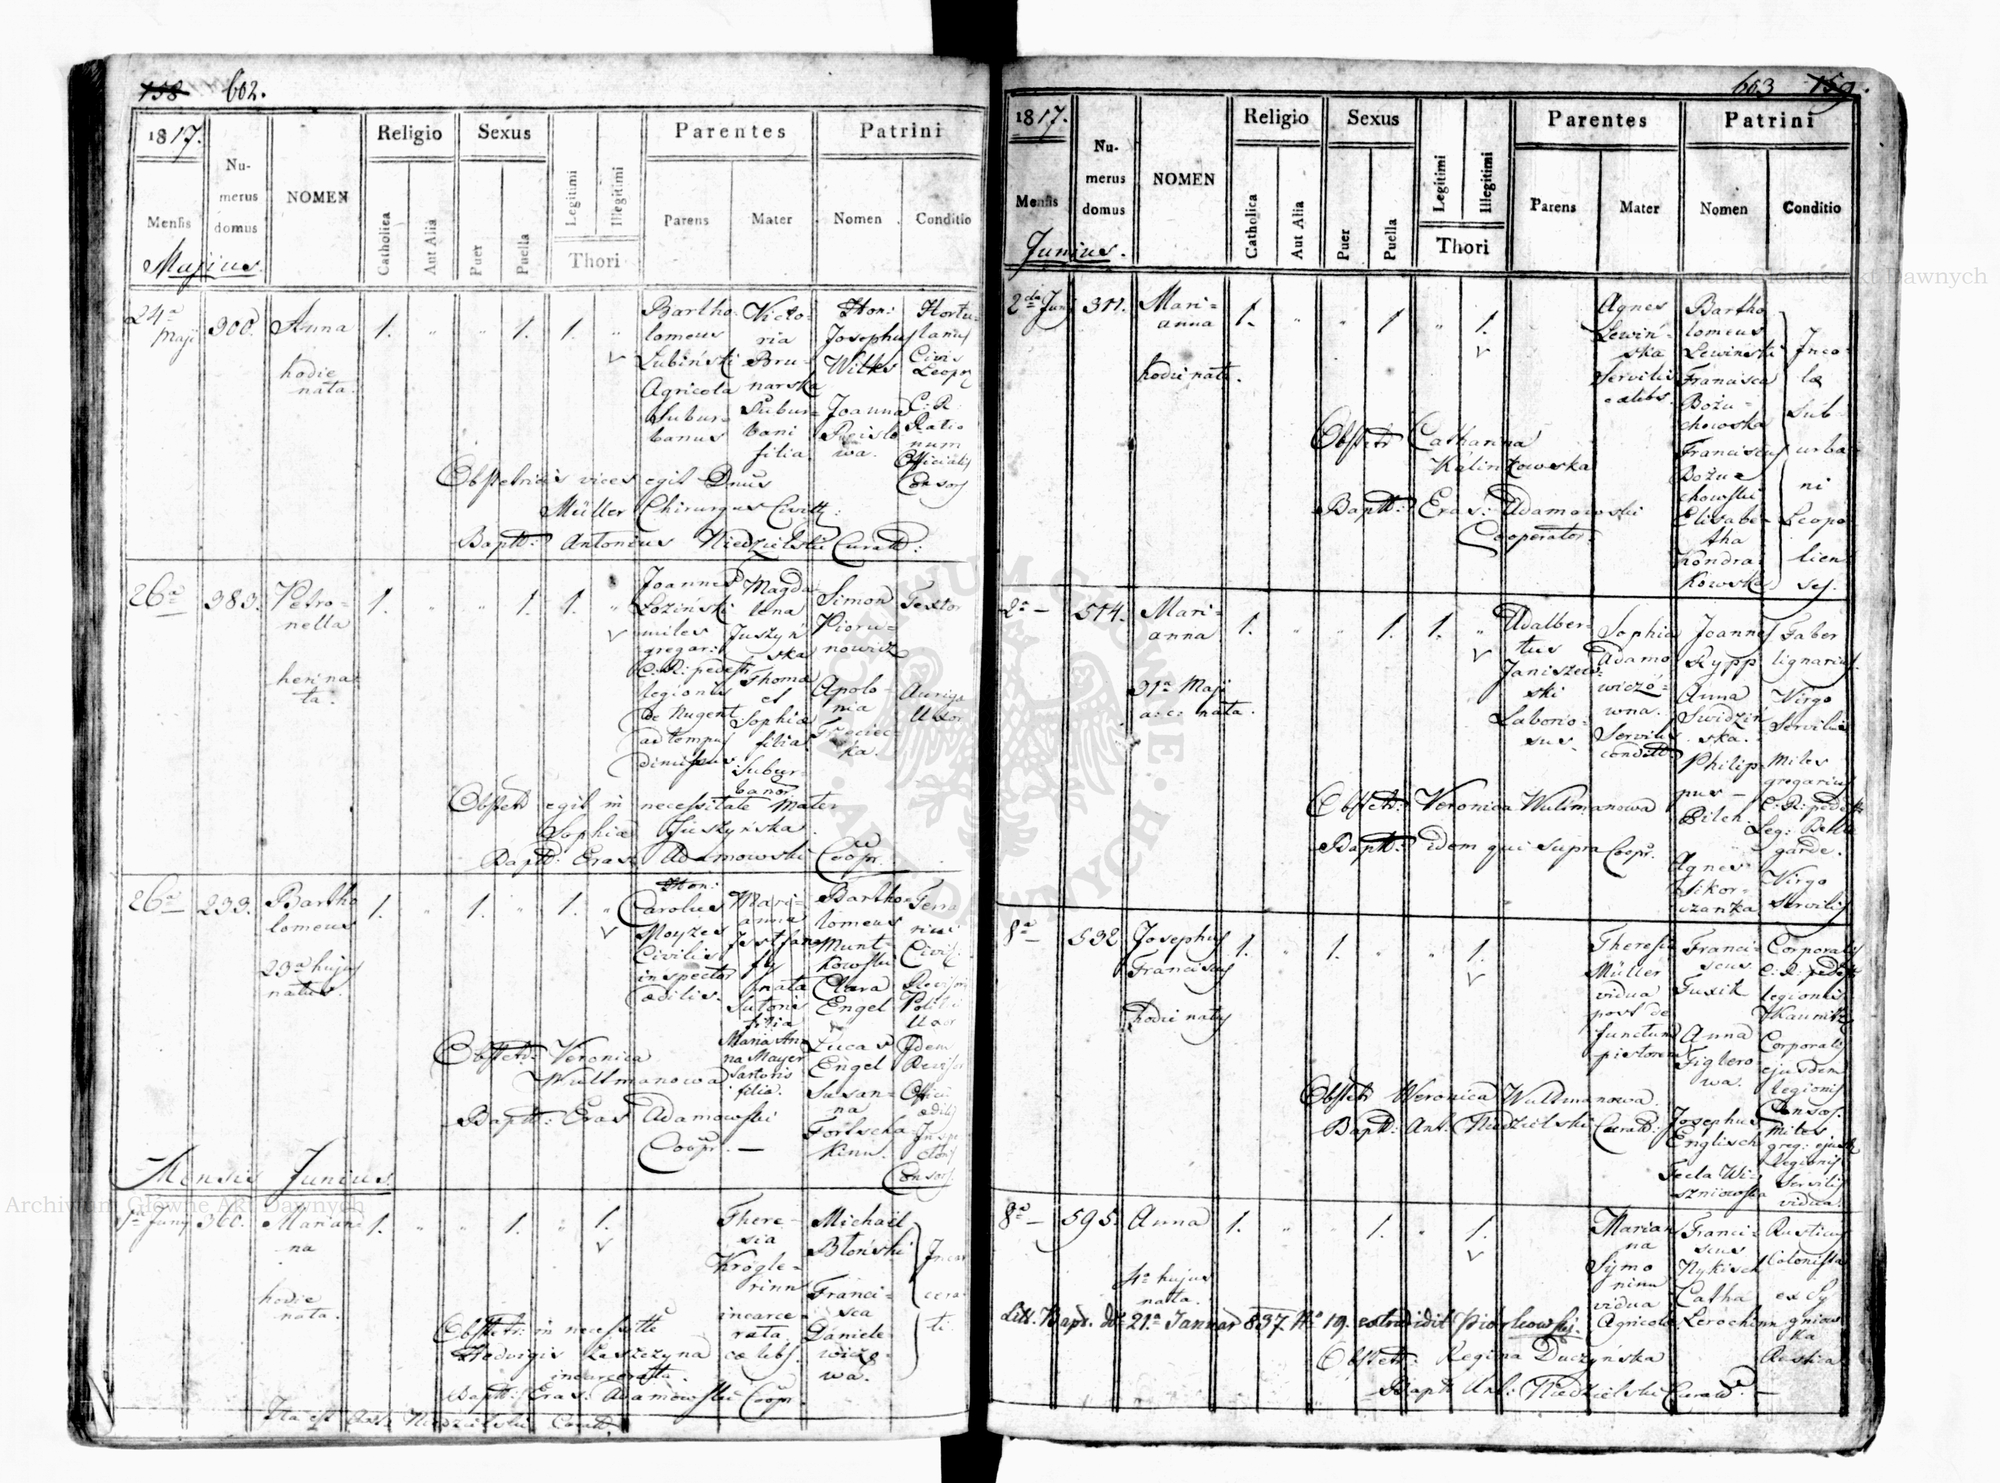 158 602.
1817.
Mensis
Majius.
Numerus domus
NOMEN
Religio
Catholica
Aut Alia
Sexus
Puer
Puella
Legitimi
Illegitimi
Thori
Parentes
Parens
Mater
Patrini
Nomen
Conditio
24a Maji
300.
Anna
hodie
nata.
1. " " 1. 1. "
Bartho
lomeus
Lubiński
Agricola
Subur=
banus
Victo=
ria
Bru=
narska
Subur=
bani
filia
Hon:
Josephus
Wilks
Joanna
Hortu=
lanus
Civis
Leop
C: R:
Ratio
num
Officialis
Consors
Obstetricis vices egit Dnus
Müller Chirurgus Civitt:
Baptt: Antonius Niedzielski Curatt:
26a
383.
Petro=
nella
heri na=
ta.
1. " " 1. 1. "
Joannes
Łoziński
miles
gregar:
C. R: pedestr
legionis
de Nugent
ad tempus
dimissus
Magda
lena
Juszyń
ska
Thoma
et
Sophia
filia
Subur=
banor
Simon
Pioru=
nowicz
Apolo=
nia
Trzeciec=
ka.
Textor
Auriga
Uxor
Obstetr egit in necessitate Mater
Sophia Juszyńska.
Baptt: Eras: Adamowski Coopr.
26a
233.
Bartho
lomeus
23a hujus
natus.
1. " 1. " 1. "
Hon:
Carolus
Moyzes
Civilis
inspector
ædilis.
Mari=
anna
nata
Sutoris
filia
Maria An
na Mayer
Sartoris
filia.
Bartho=
lomeus
Munt=
kowski
Clara
Engel
Lucas
Engel
Susan=
na
Civis
Uxor
Idem
Consors
Obstetr: Veronica
Wultmanowa
Baptt: Eras Adamowski
Coopr. —
Mensis Junius
1a Juny
360.
Marian
na
hodie
nata.
1. " " 1. " 1.
There=
sia
Krögle=
rinn
incarce=
rata
cælebs.
Michael
Błoński
Franci=
sca
Daniele
wiczo=
wa.
Incar
cera
ti
Obstetr: in necessitte
Hedvigis Leszczyna
incarceratta.
Baptt: Eras: Adamowski Coopr.
Ita est Ant: Niedzielski Curatt.
603 159.
1817.
Mensis
Junius.
Numerus domus
NOMEN
Religio
Catholica
Aut Alia
Sexus
Puer
Puella
Legitimi
Illegitimi
Thori
Parentes
Parens
Mater
Patrini
Nomen
Conditio
2da Juny
311.
Mari=
anna
hodie nata.
1. " " 1. " 1.
Agnes
Lewiń=
ska
Servilis
cælebs.
Bartho
lomeus
Lewiński
Francisca
Bożu=
chowska
Franciscus
Bożu=
chowski
Elisabe=
tha
Kondra
kowska
Inco=
læ
sub=
urba=
ni
Leopo
lien
ses.
Obstetr Catharina
Kalinkowska
Baptt: Eras: Adamowski
Cooperator.
2a —
514.
Mari=
anna
31a Maji
a: c: nata.
1. " " 1. 1. "
Adalber=
tus
Janiszew=
ski
Laborio=
sus.
Sophia
Adamo
wiczó=
wna.
Servilis
conditt
Joannes
Rypp
Anna
Swidziń
ska.
Philip=
pus —
Bilek
Agnes
Sikor=
czanka
Faber
lignarius.
Virgo
Servilis
Miles
gregarius
C: R: pedestr
Leg: Belle
garde.
Virgo
Servilis
Obstetr: Veronica Wultmanowa
Baptt: idem qui supra Coopr.
8a —
532.
Josephus
Franciscus
hodie natus
1. " 1. " " 1.
Theresia
Müller
vidua
post de
functum
pistorem
Franci=
scus
Fuxik
Anna
Figlero
wa.
Josephus
Englisch
Tecla Wi=
szniowska
Corporalis
C: R: pedestr
legionis
Kaunitz
Corporalis
ejusdem
legionis
Consors.
miles
greg: ejusd
legionis
Servilis
vidua.
Obstetr Weronica Wultmanowa.
Baptt: Ant. Niedzielski Curatt:
8a —
595.
Anna
4a hujus
natta.
1. " " 1. " 1.
Marian
na
Symo
nina
vidua
Agricolæ
Franci=
scus
Nykisch
Catha
Lerochinn
Rusticus
Colonista
ex Cy
gniows
ka
Rustica
Litt. Bapt. dt 21a Januar 837 No 19. extradidit Piorkowski.
Obstetr: Regina Duczyńska
Baptt Ant: Niedzielski Curatt. —
Archiwum Główne Akt Dawnych
Archiwum Główne Akt Dawnych
ARCHIWUM GŁÓWNE · AKT DAWNYCH ·